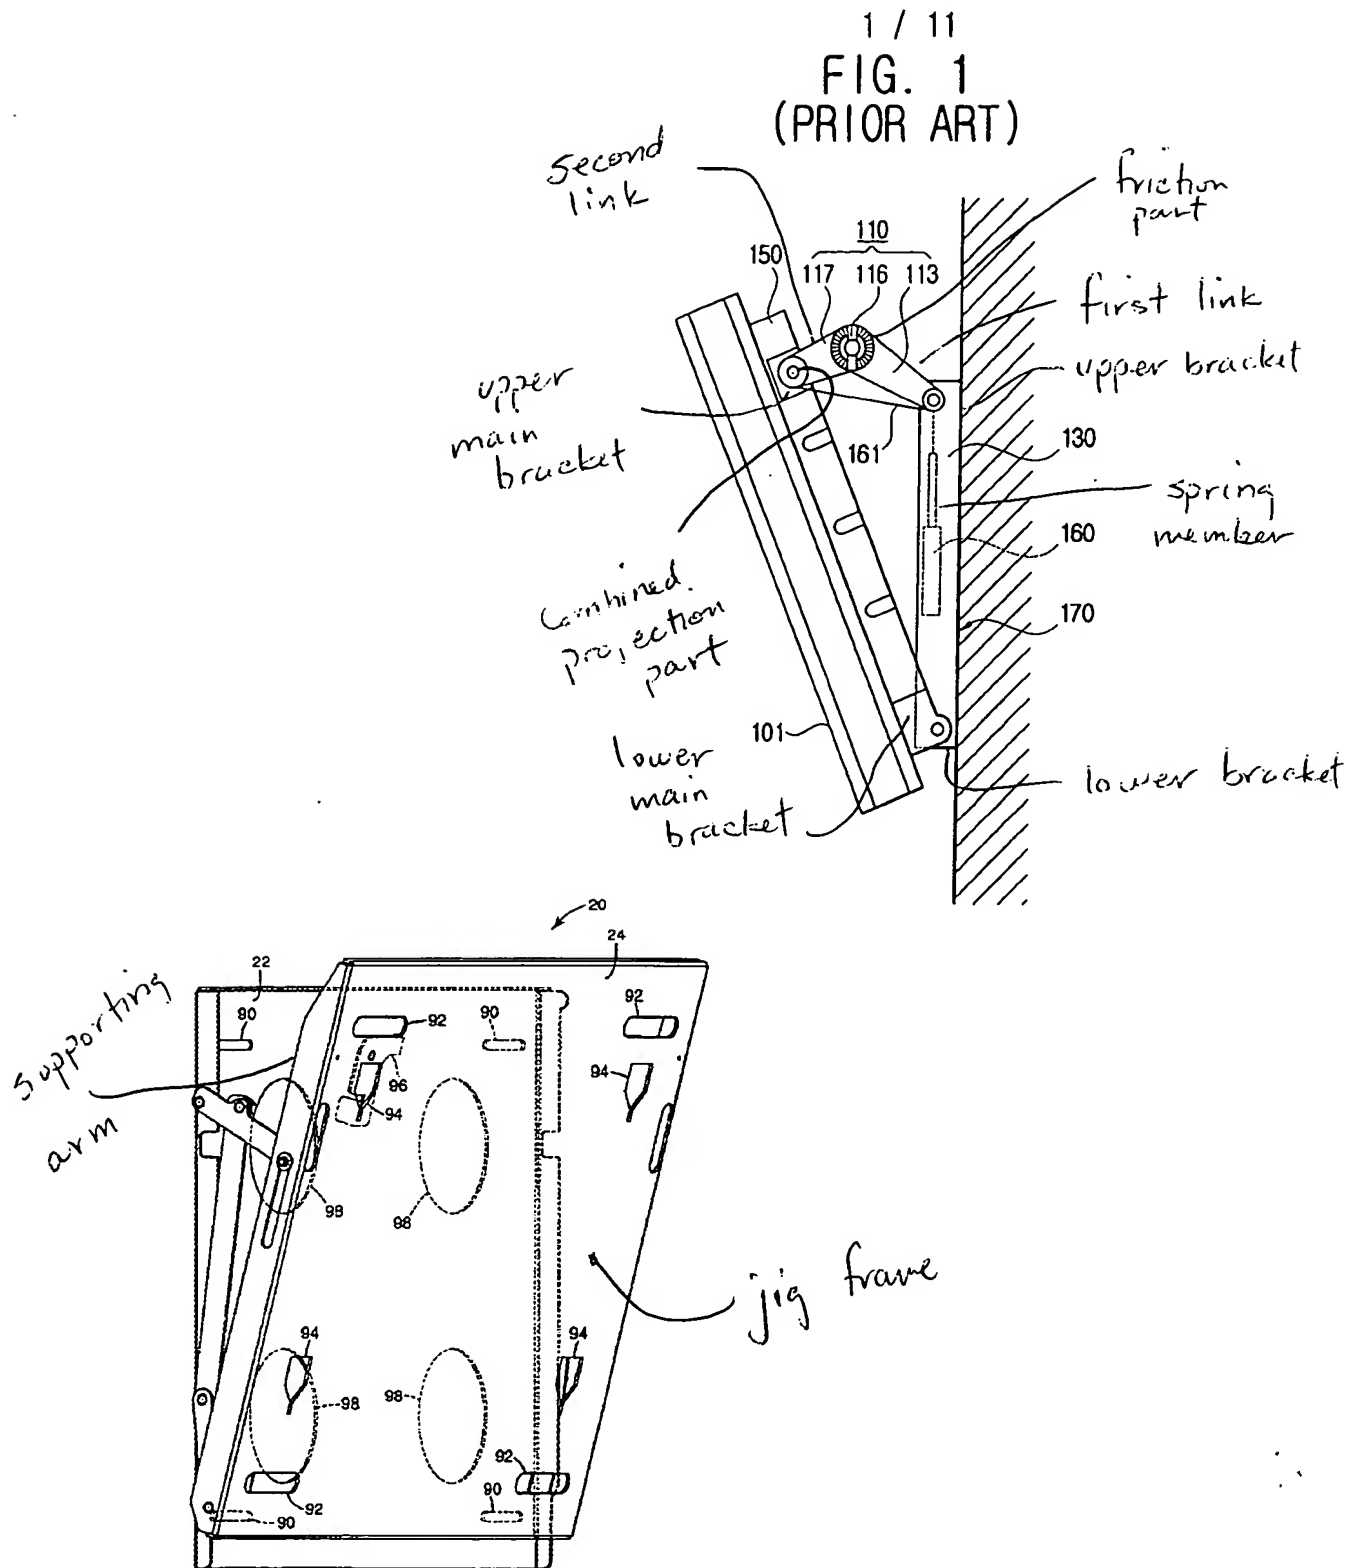 1 / 11
FIG. 1
(PRIOR ART)
second
link
friction
part
110
150
117 116 113
first link
upper bracket
upper
main
bracket
161
130
spring
member
160
combined
projection
part
170
101
lower
main
bracket
lower bracket
20
24
22
supporting
arm
90
92
90
92
96
94
94
98
98
jig frame
94
94
98
98
92
92
90
90